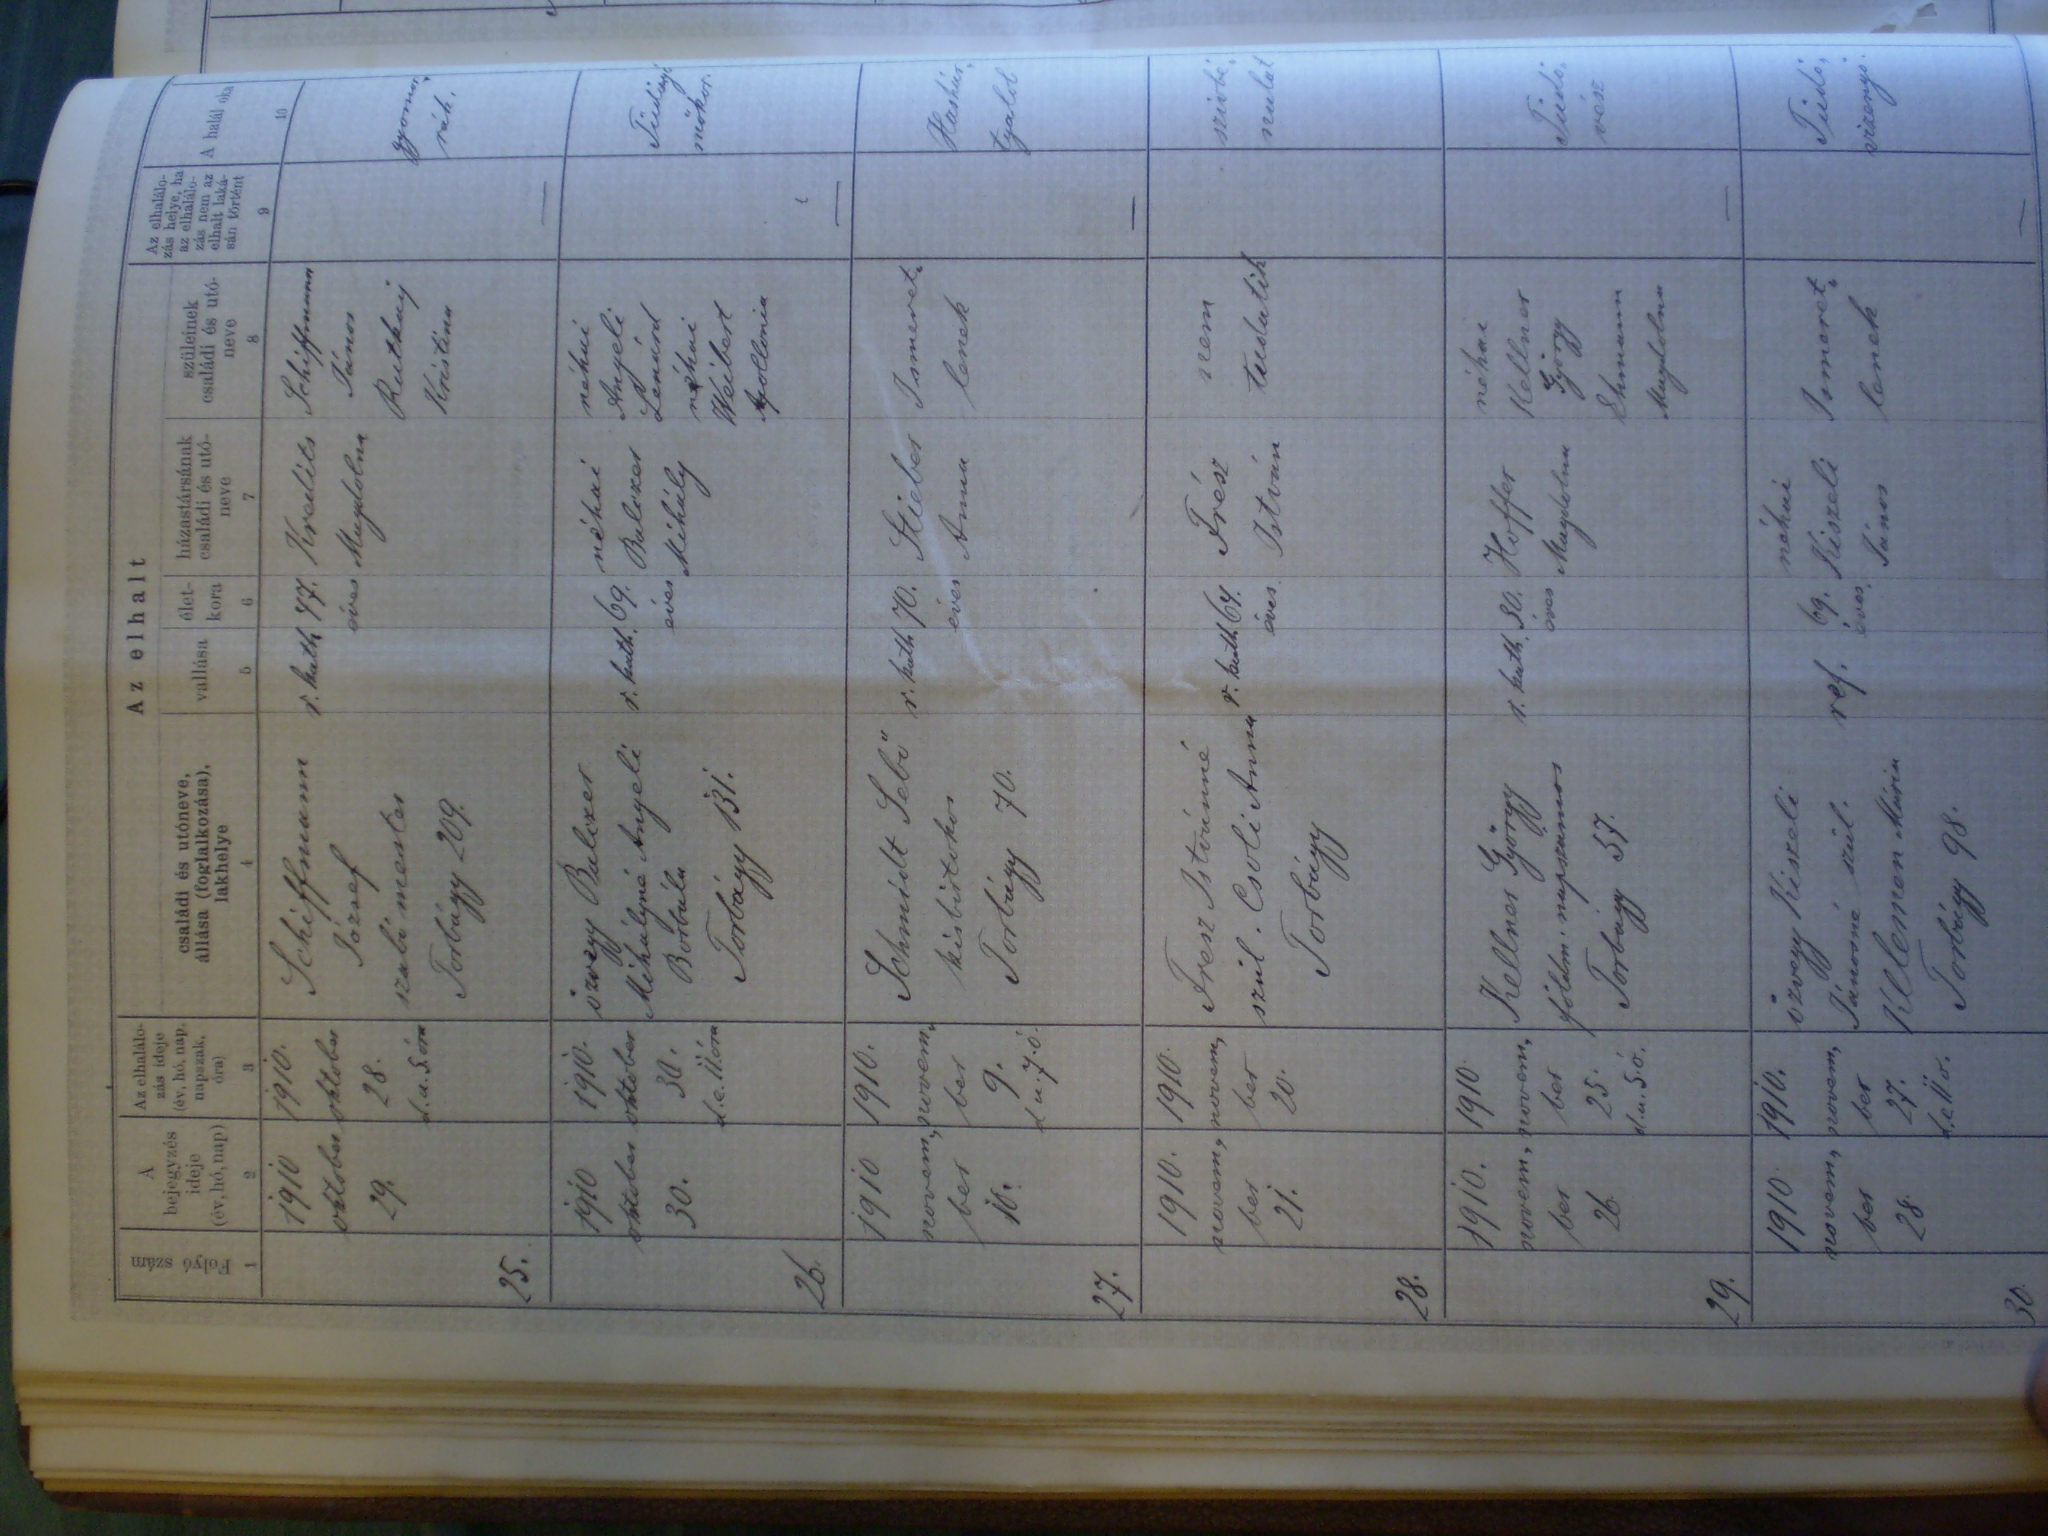 Az elhalt
Folyó szám
A bejegyzés ideje (év, hó, nap)
Az elhalálo-
zás ideje
(év, hó, nap,
napszak,
óra)
családi és utóneve,
állása (foglalkozása),
lakhelye
vallása
élet-
kora
házastársának
családi és utó-
neve
szüleinek
családi és utó-
neve
Az elhalálo-
zás helye, ha
az elhalálo-
zás nem az
elhalt laká-
sán történt
A halál oka
1
2
3
4
5
6
7
8
9
10
25.
1910
október
29.
1910.
október
28.
d.u. 5 óra
Schiffmann
József
szabó mester
Torbágy 209.
r. kath.
47.
éves
Kreslits
Magdolna
Schiffmann
János
Ruthay
Kristina
gyomor,
rák.
26.
1910
október
30.
1910.
október
30.
d.e. 11 óra
özvegy Balczer
Mihályné Angeli
Borbála
Torbágy 131.
r. kath.
69.
éves
néhai
Balczer
Mihály
néhai
Angeli
Lénárd
néhai
Weibert
Apollonia
27.
1910
novem,
ber
10.
1910.
novem,
ber
9.
d.u. 7.ó.
Schmidt Sebő
kisbirtokos
Torbágy 70.
r. kath.
70.
éves
Stieber
Anna
Ismeret,
lenek
Hashár,
tyalob
28.
1910.
novem,
ber
21.
1910.
novem,
ber
20.
Fresz Istvánné
szül. Csoli Anna
Torbágy
r. kath.
64.
éves.
Frész
István
nem
tudatik
29.
1910.
novem,
ber
26.
1910.
novem,
ber
25.
d.u. 5.ó.
Kellner György
földm. napszámos
Torbágy 57.
r. kath.
30.
éves
Hoffer
Magdolna
néhai
Kellner
György
Ehmann
Magdolna
Tüdő,
vész
30.
1910.
novem,
ber
28.
1910.
novem,
ber
27.
d.e. 11 ó.
özvegy Kiszeli
Jánosné szül.
Klemen Mária
Torbágy 98.
ref.
69.
éves.
néhai
Kiszeli
János
Ismeret,
lenek
Tüdő,
vizenyő.